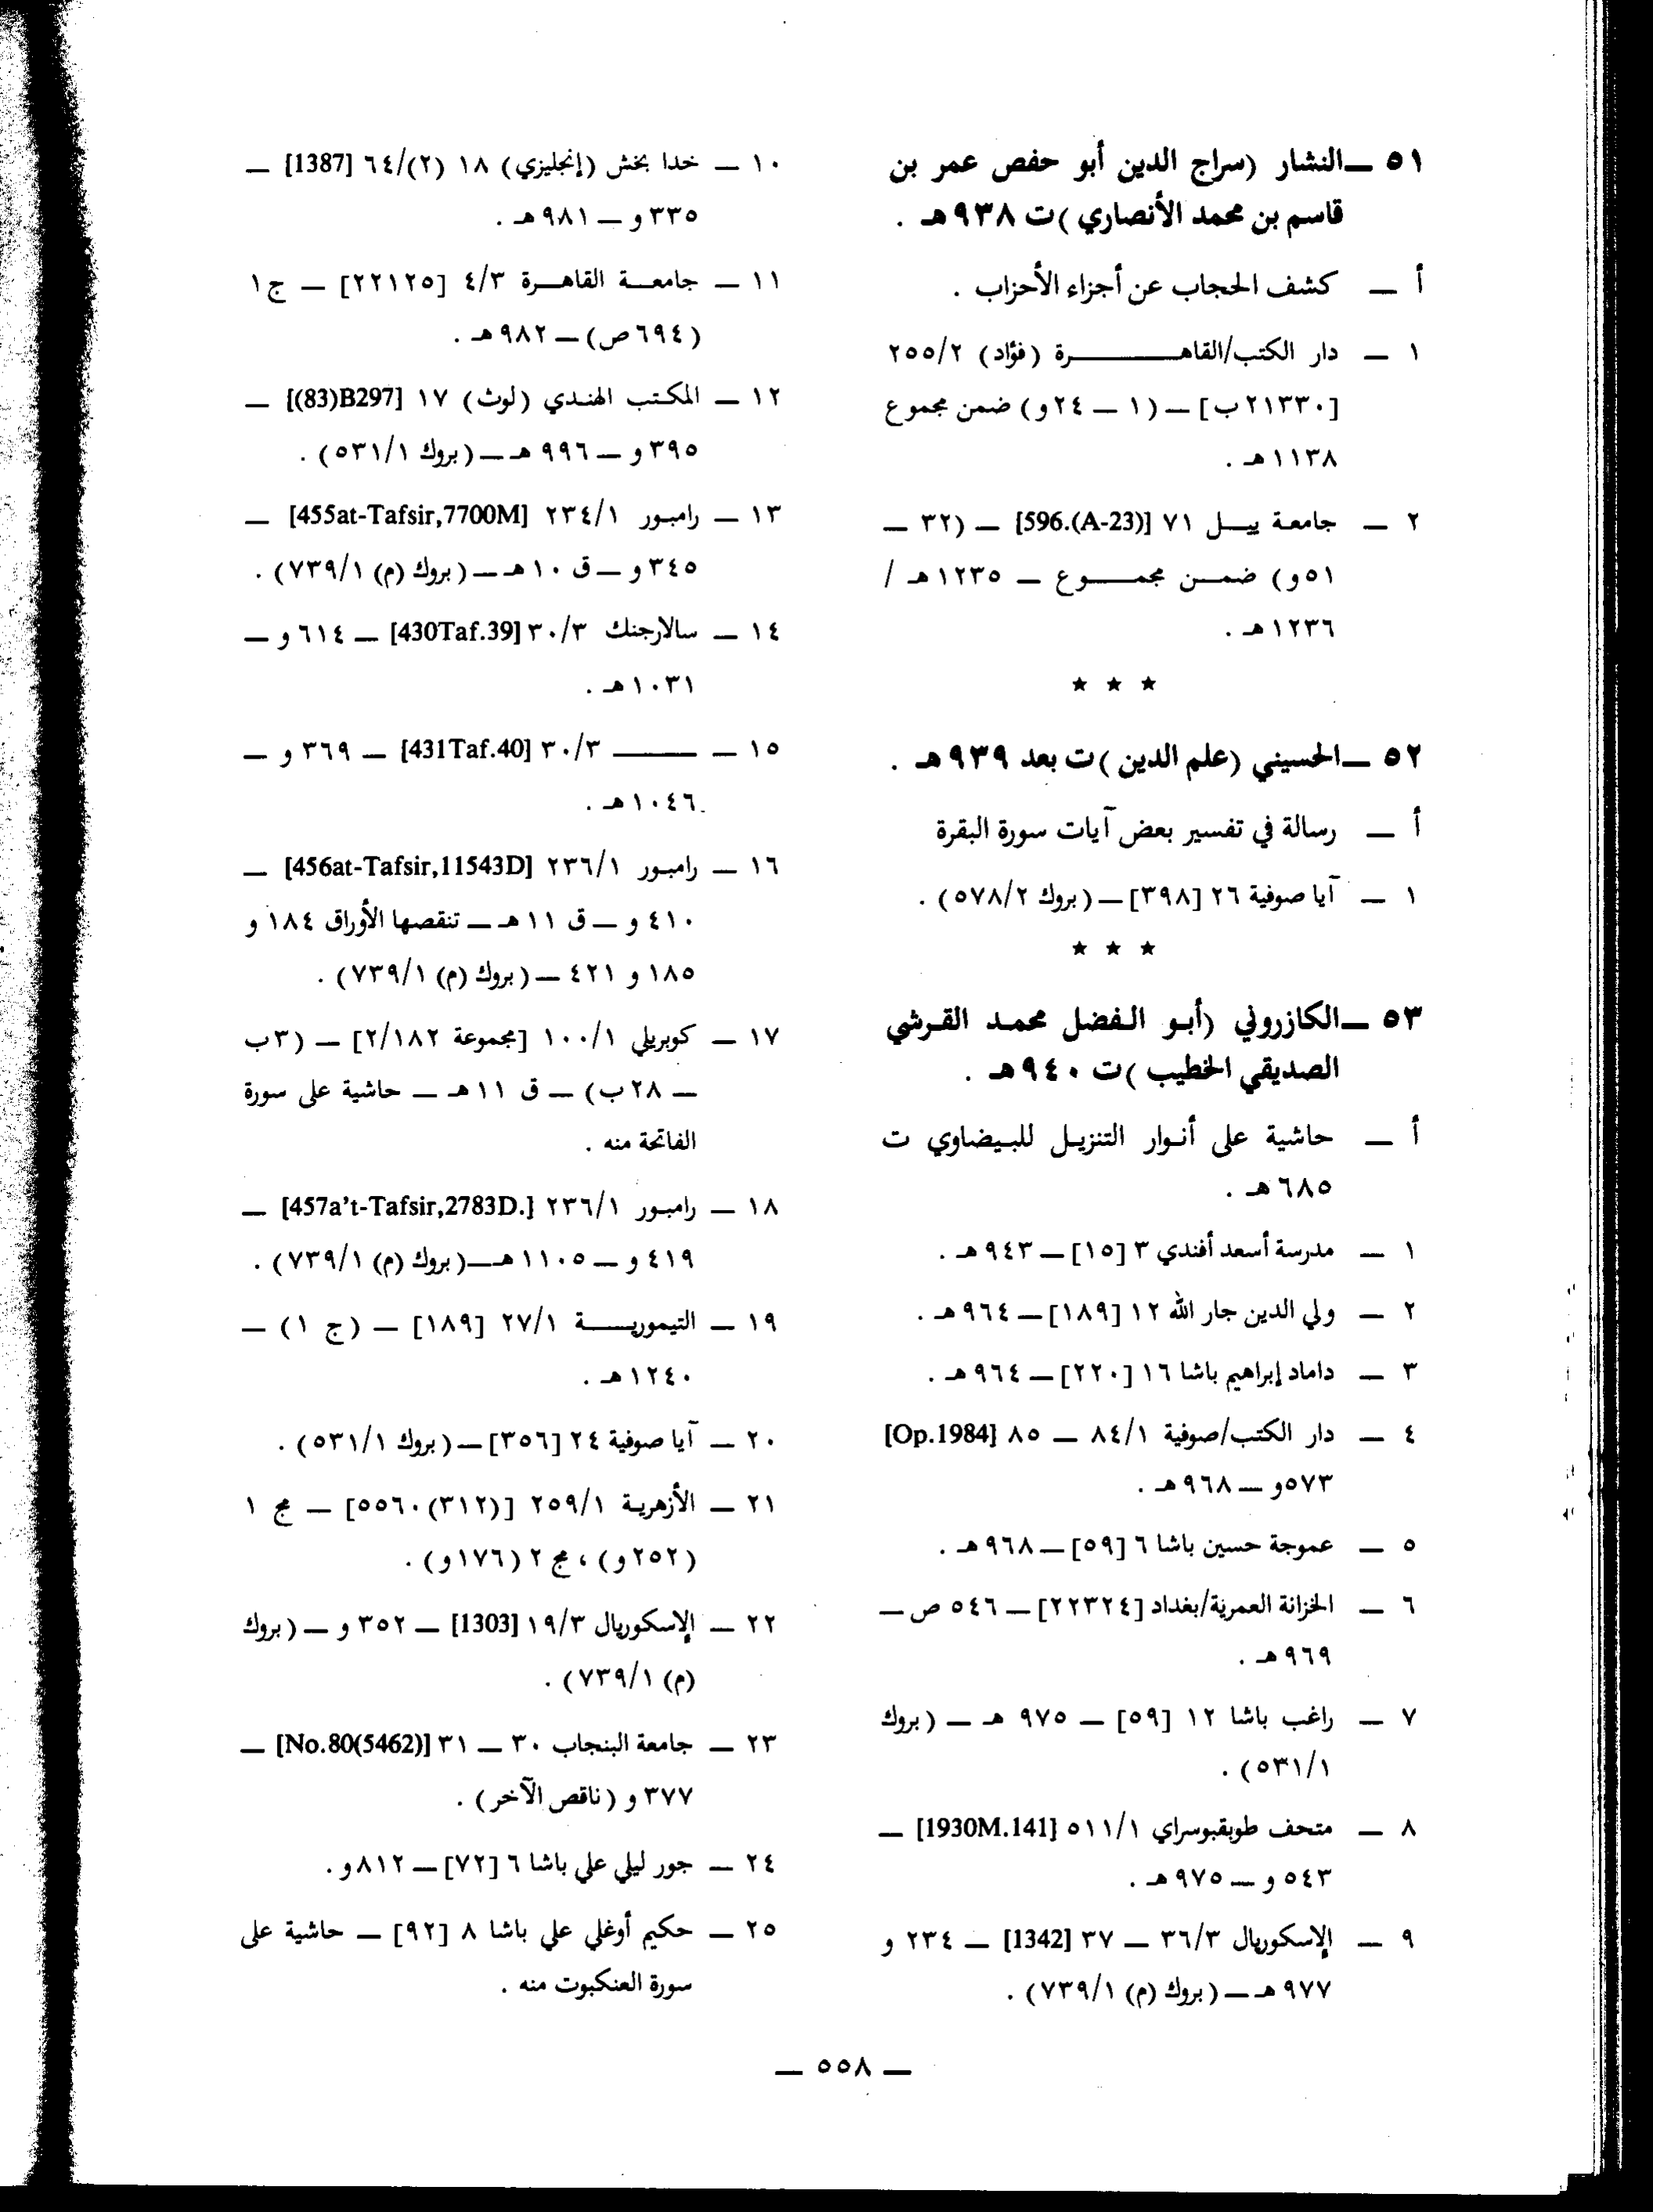 ٥١ ــ النشار (سراج الدين أبو حفص عمر بن
قاسم بن محمد الأنصاري) ت ٩٣٨هـ .
أ ــ كشف الحجاب عن أجزاء الأحزاب .
١ ــ دار الكتب/القاهـــرة (فؤاد) ٢٥٥/٢
[٢١٣٣٠ب] ــ (١ ــ ٢٤و) ضمن مجموع
١١٣٨هـ .
٢ ــ جامعة ييــل ٧١ [596.(A-23)] ــ (٣٢ ــ
٥١و) ضمــن مجمــوع ــ ١٢٣٥هـ /
١٢٣٦هـ .
★ ★ ★
٥٢ ــ الحسيني (علم الدين) ت بعد ٩٣٩هـ .
أ ــ رسالة في تفسير بعض آيات سورة البقرة
١ ــ آيا صوفية ٢٦ [٣٩٨] ــ (بروك ٥٧٨/٢) .
★ ★ ★
٥٣ ــ الكازروني (أبـو الـفضل محمـد القـرشي
الصديقي الخطيب) ت ٩٤٠هـ .
أ ــ حاشية على أنـوار التنزيـل للبـيضاوي ت
٦٨٥هـ .
١ ــ مدرسة أسعد أفندي ٣ [١٥] ــ ٩٤٣هـ .
٢ ــ ولي الدين جار الله ١٢ [١٨٩] ــ ٩٦٤هـ .
٣ ــ داماد إبراهيم باشا ١٦ [٢٢٠] ــ ٩٦٤هـ .
٤ ــ دار الكتب/صوفية ٨٤/١ ــ ٨٥ [Op.1984]
٥٧٣و ــ ٩٦٨هـ .
٥ ــ عموجة حسين باشا ٦ [٥٩] ــ ٩٦٨هـ .
٦ ــ الخزانة العمرية/بغداد [٢٢٣٢٤] ــ ٥٤٦ ص ــ
٩٦٩هـ .
٧ ــ راغب باشا ١٢ [٥٩] ــ ٩٧٥ هـ ــ (بروك
٥٣١/١) .
٨ ــ متحف طوبقبوسراي ٥١١/١ [1930M.141] ــ
٥٤٣ و ــ ٩٧٥هـ .
٩ ــ الإسكوريال ٣٦/٣ ــ ٣٧ [1342] ــ ٢٣٤ و
٩٧٧ هـ ــ (بروك (م) ٧٣٩/١) .
١٠ ــ خدا بخش (إنجليزي) ١٨ (٢)/٦٤ [1387] ــ
٣٣٥و ــ ٩٨١هـ .
١١ ــ جامعــة القاهــرة ٤/٣ [٢٢١٢٥] ــ ج١
(٦٩٤ص) ــ ٩٨٢هـ .
١٢ ــ المكتب الهندي (لوث) ١٧ [(83)B297)] ــ
٣٩٥و ــ ٩٩٦ هـ ــ (بروك ٥٣١/١) .
١٣ ــ رامبـور ٢٣٤/١ [455at-Tafsir,7700M] ــ
٣٤٥و ــ ق ١٠هـ ــ (بروك (م) ٧٣٩/١) .
١٤ ــ سالارجنك ٣٠/٣ [430Taf.39] ــ ٦١٤ و ــ
١٠٣١هـ .
١٥ ــ ــــــ ٣٠/٣ [431Taf.40] ــ ٣٦٩ و ــ
١٠٤٦هـ .
١٦ ــ رامبـور ٢٣٦/١ [456at-Tafsir,11543D] ــ
٤١٠ و ــ ق ١١هـ ــ تنقصها الأوراق ١٨٤ و
١٨٥ و ٤٢١ ــ (بروك (م) ٧٣٩/١) .
١٧ ــ كوبريلي ١٠٠/١ [مجموعة ٢/١٨٢] ــ (٣ب
ــ ٢٨ب) ــ ق ١١هـ ــ حاشية على سورة
الفاتحة منه .
١٨ ــ رامبـور ٢٣٦/١ [457a't-Tafsir,2783D.] ــ
٤١٩ و ــ ١١٠٥هــ(بروك (م) ٧٣٩/١) .
١٩ ــ التيموريــة ٢٧/١ [١٨٩] ــ (ج ١) ــ
١٢٤٠هـ .
٢٠ ــ آيا صوفية ٢٤ [٣٥٦] ــ (بروك ٥٣١/١) .
٢١ ــ الأزهرية ٢٥٩/١ [(٣١٢)٥٥٦٠] ــ مج ١
(٢٥٢و) ، مج ٢ (١٧٦و) .
٢٢ ــ الإسكوريال ١٩/٣ [1303] ــ ٣٥٢ و ــ (بروك
(م) ٧٣٩/١) .
٢٣ ــ جامعة البنجاب ٣٠ ــ ٣١ [No.80(5462)] ــ
٣٧٧ و (ناقص الآخر) .
٢٤ ــ جور ليلي علي باشا ٦ [٧٢] ــ ٨١٢و .
٢٥ ــ حكيم أوغلي علي باشا ٨ [٩٢] ــ حاشية على
سورة العنكبوت منه .
ــ ٥٥٨ ــ